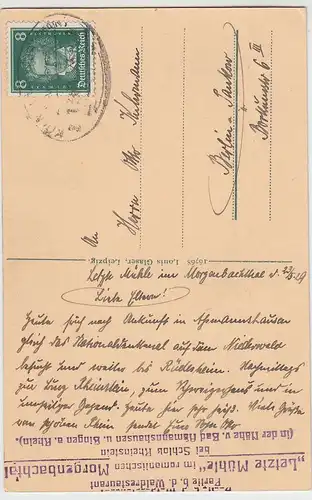 8
Deutsches Reich
8
An
Herrn Otto
Berlin-Pankow
Borkumstr 6 III
16763 Louis Glaser, Leipzig.
Letzte Mühle im Morgenbachthal d. 22/5 29
Liebe Eltern!
Heute früh nach Ankunft in Assmannshausen
gleich das Nationaldenkmal auf dem Niederwald
besucht und weiter bis Rüdesheim. Nachmittags
zur Burg Rheinstein, zum Schweizerhaus und in
Gegend. Heute sehr heiß. Viele Grüße
vom schönen Rhein sendet Euer
„Letzte Mühle" im romantischen Morgenbachtal
bei Schloß Rheinstein
(in der Nähe v. Bad Assmannshausen u. Bingen a. Rhein).
Partie a. d. Waldrestaurant